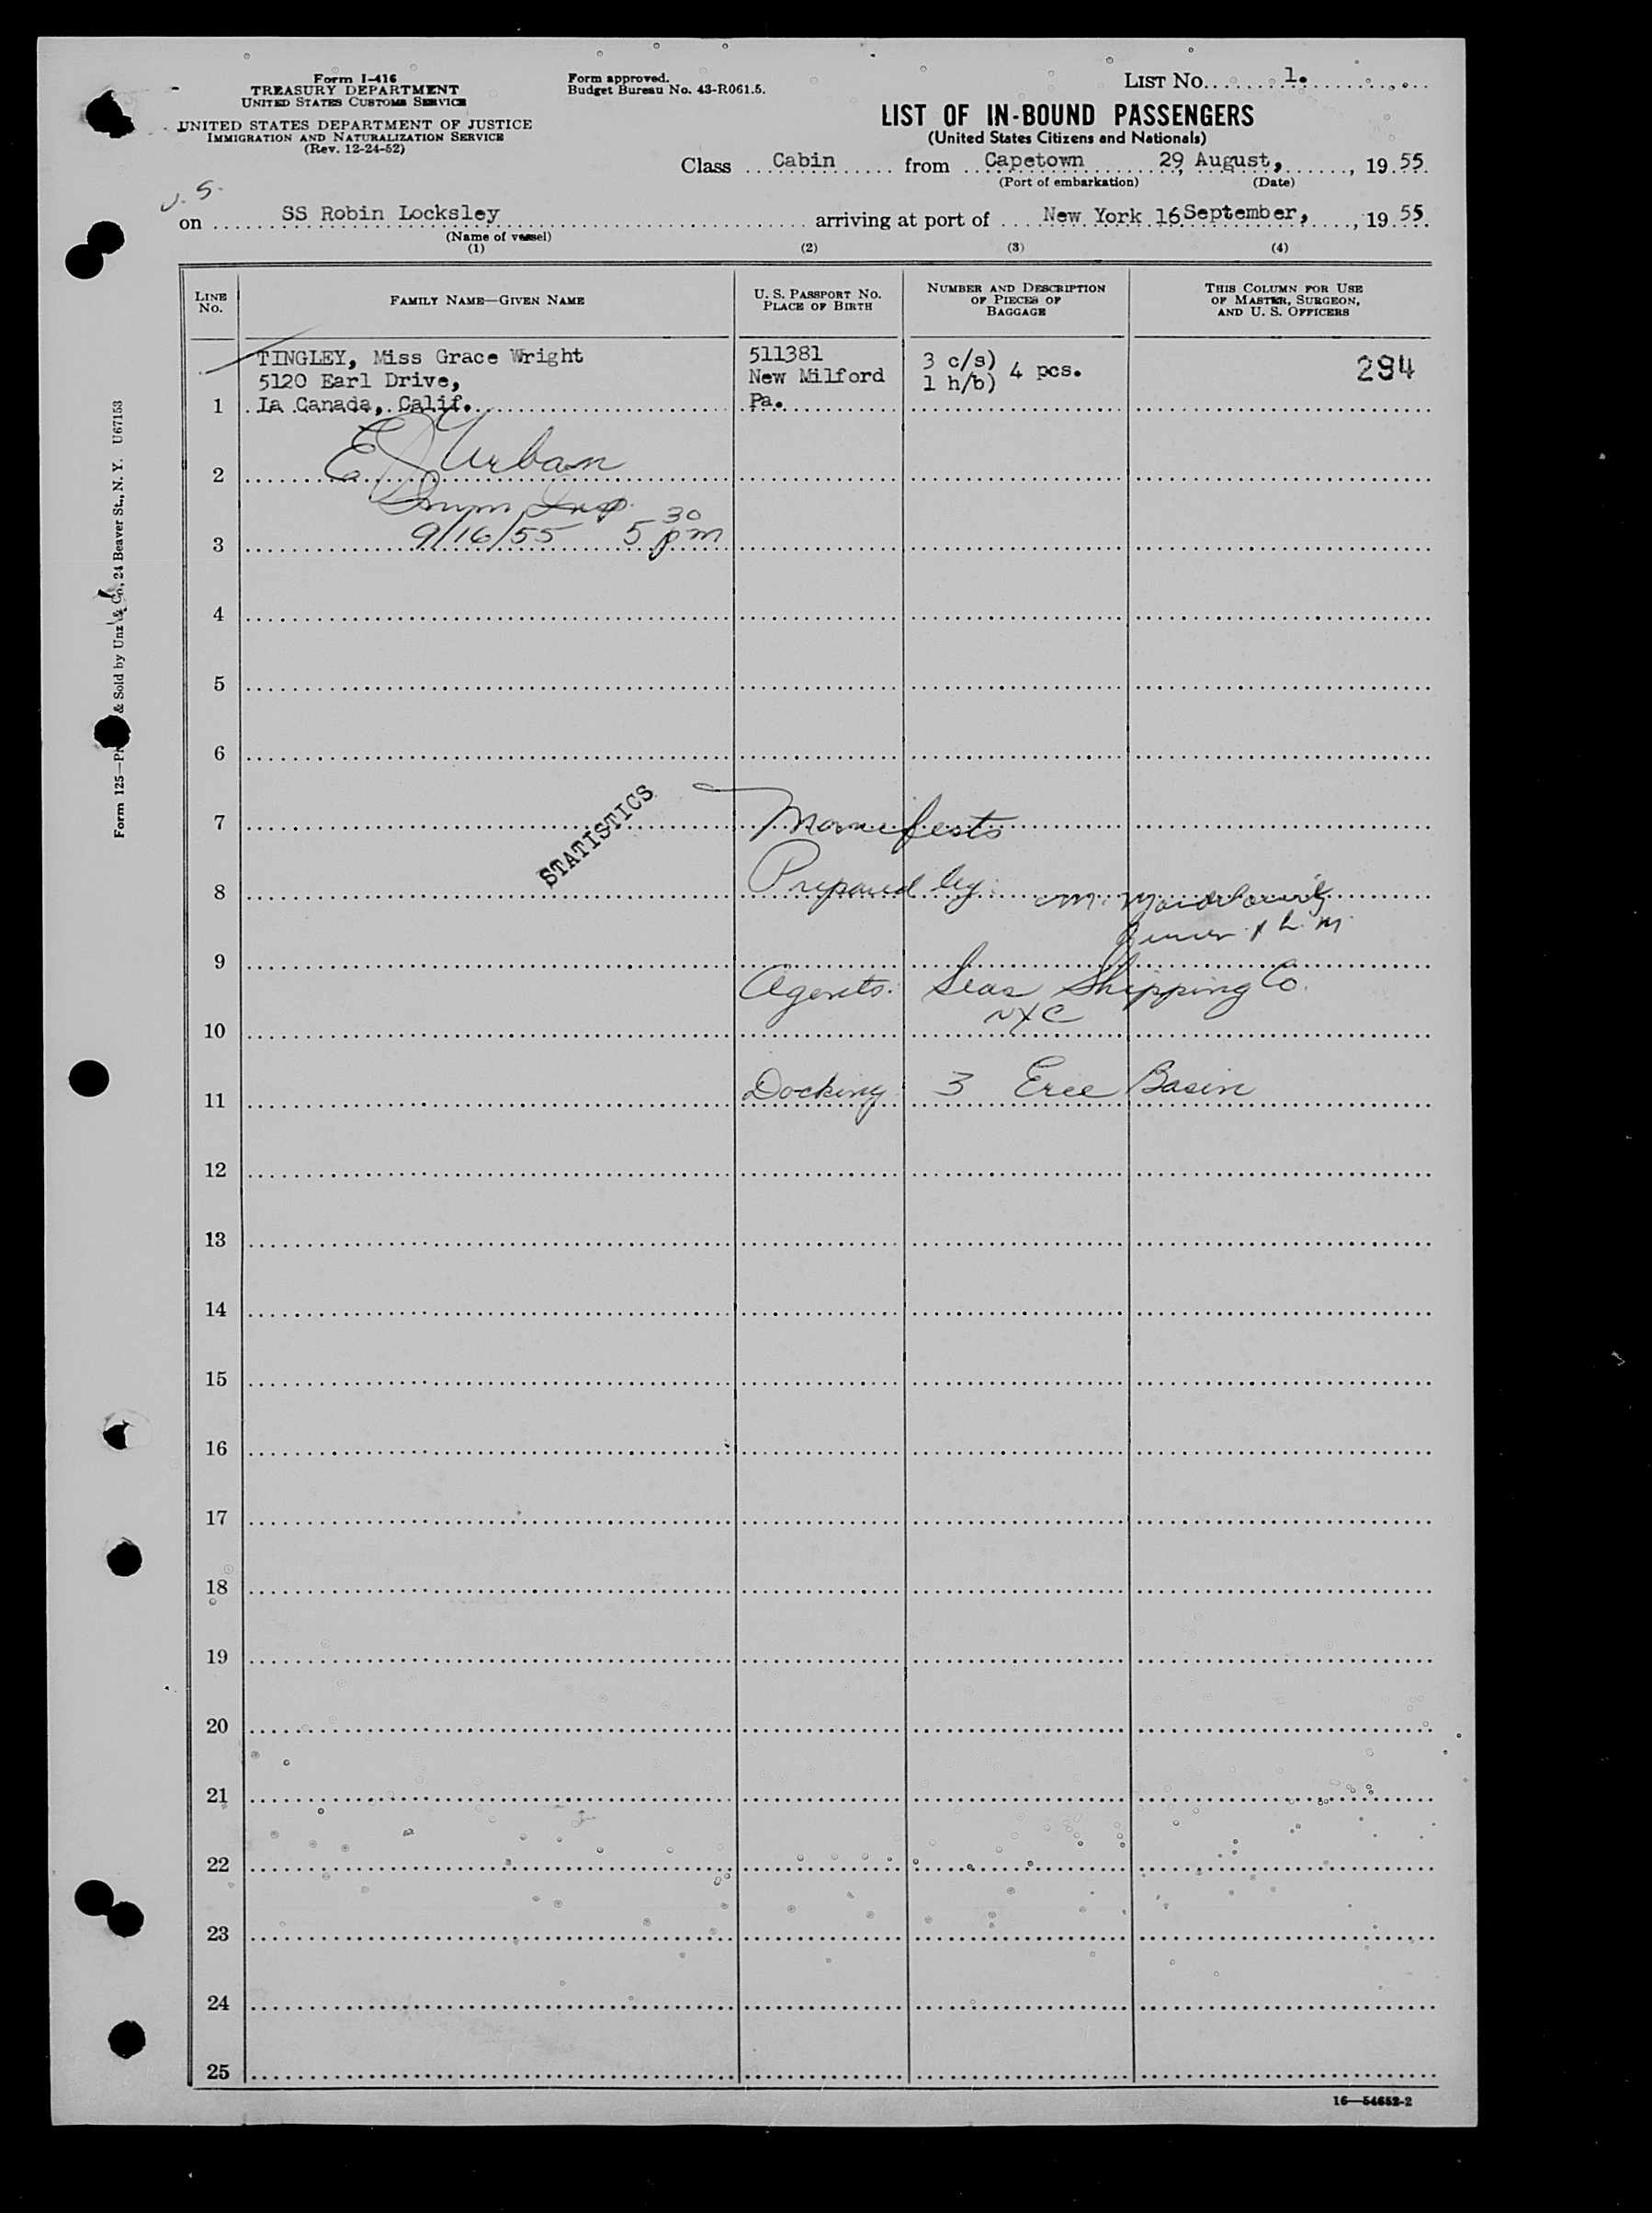 Form I-416
TREASURY DEPARTMENT
UNITED STATES CUSTOMS SERVICE
UNITED STATES DEPARTMENT OF JUSTICE
IMMIGRATION AND NATURALIZATION SERVICE
(Rev. 12-24-52)
Form approved.
Budget Bureau No. 43-R061.5.
LIST No. 1.
LIST OF IN-BOUND PASSENGERS
(United States Citizens and Nationals)
Class Cabin from Capetown 29 August, , 19 55
(Port of embarkation) (Date)
U.S.
on SS Robin Locksley arriving at port of New York 16 September, , 19 55
(Name of vessel)
(1) (2) (3) (4)
LINE No. FAMILY NAME—GIVEN NAME U. S. PASSPORT NO. PLACE OF BIRTH NUMBER AND DESCRIPTION OF PIECES OF BAGGAGE THIS COLUMN FOR USE OF MASTER, SURGEON, AND U. S. OFFICERS
TINGLEY, Miss Grace Wright 511381 3 c/s) 4 pcs. 294
5120 Earl Drive, New Milford 1 h/b)
1 La Canada, Calif. Pa.
2 E J Urban
Imm Insp.
3 9/16/55 5 30 pm
4
5
6
STATISTICS
7 Manifests
8 Prepared by: M.
9
Agents: Seas Shipping Co.
NYC
10
11 Docking 3 Erie Basin
12
13
14
15
16
17
18
19
20
21
22
23
24
25
16—54652-2
Form 125— & Sold by Unz & Co., 24 Beaver St., N. Y. U67153